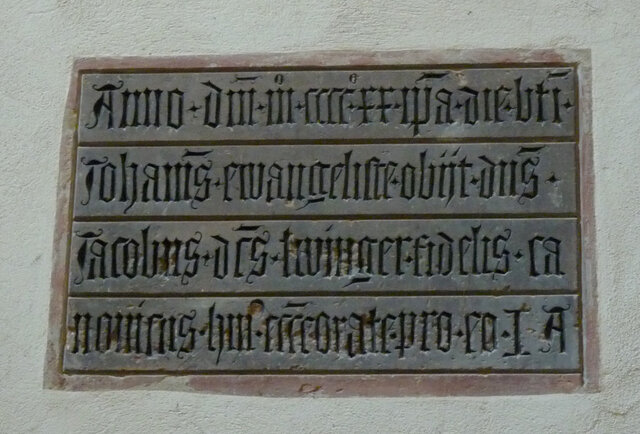 Anno · dm̄ · mͦ · ccccͦ · xx · ip̄a · die · bt̄i ·
Johanīs · ewangeliste · obijt · dn̄s ·
Jacobus · dc̄s · twinger · fidelis · ca
nonicus · hui · ecc̄e orate · pro · eo · I A